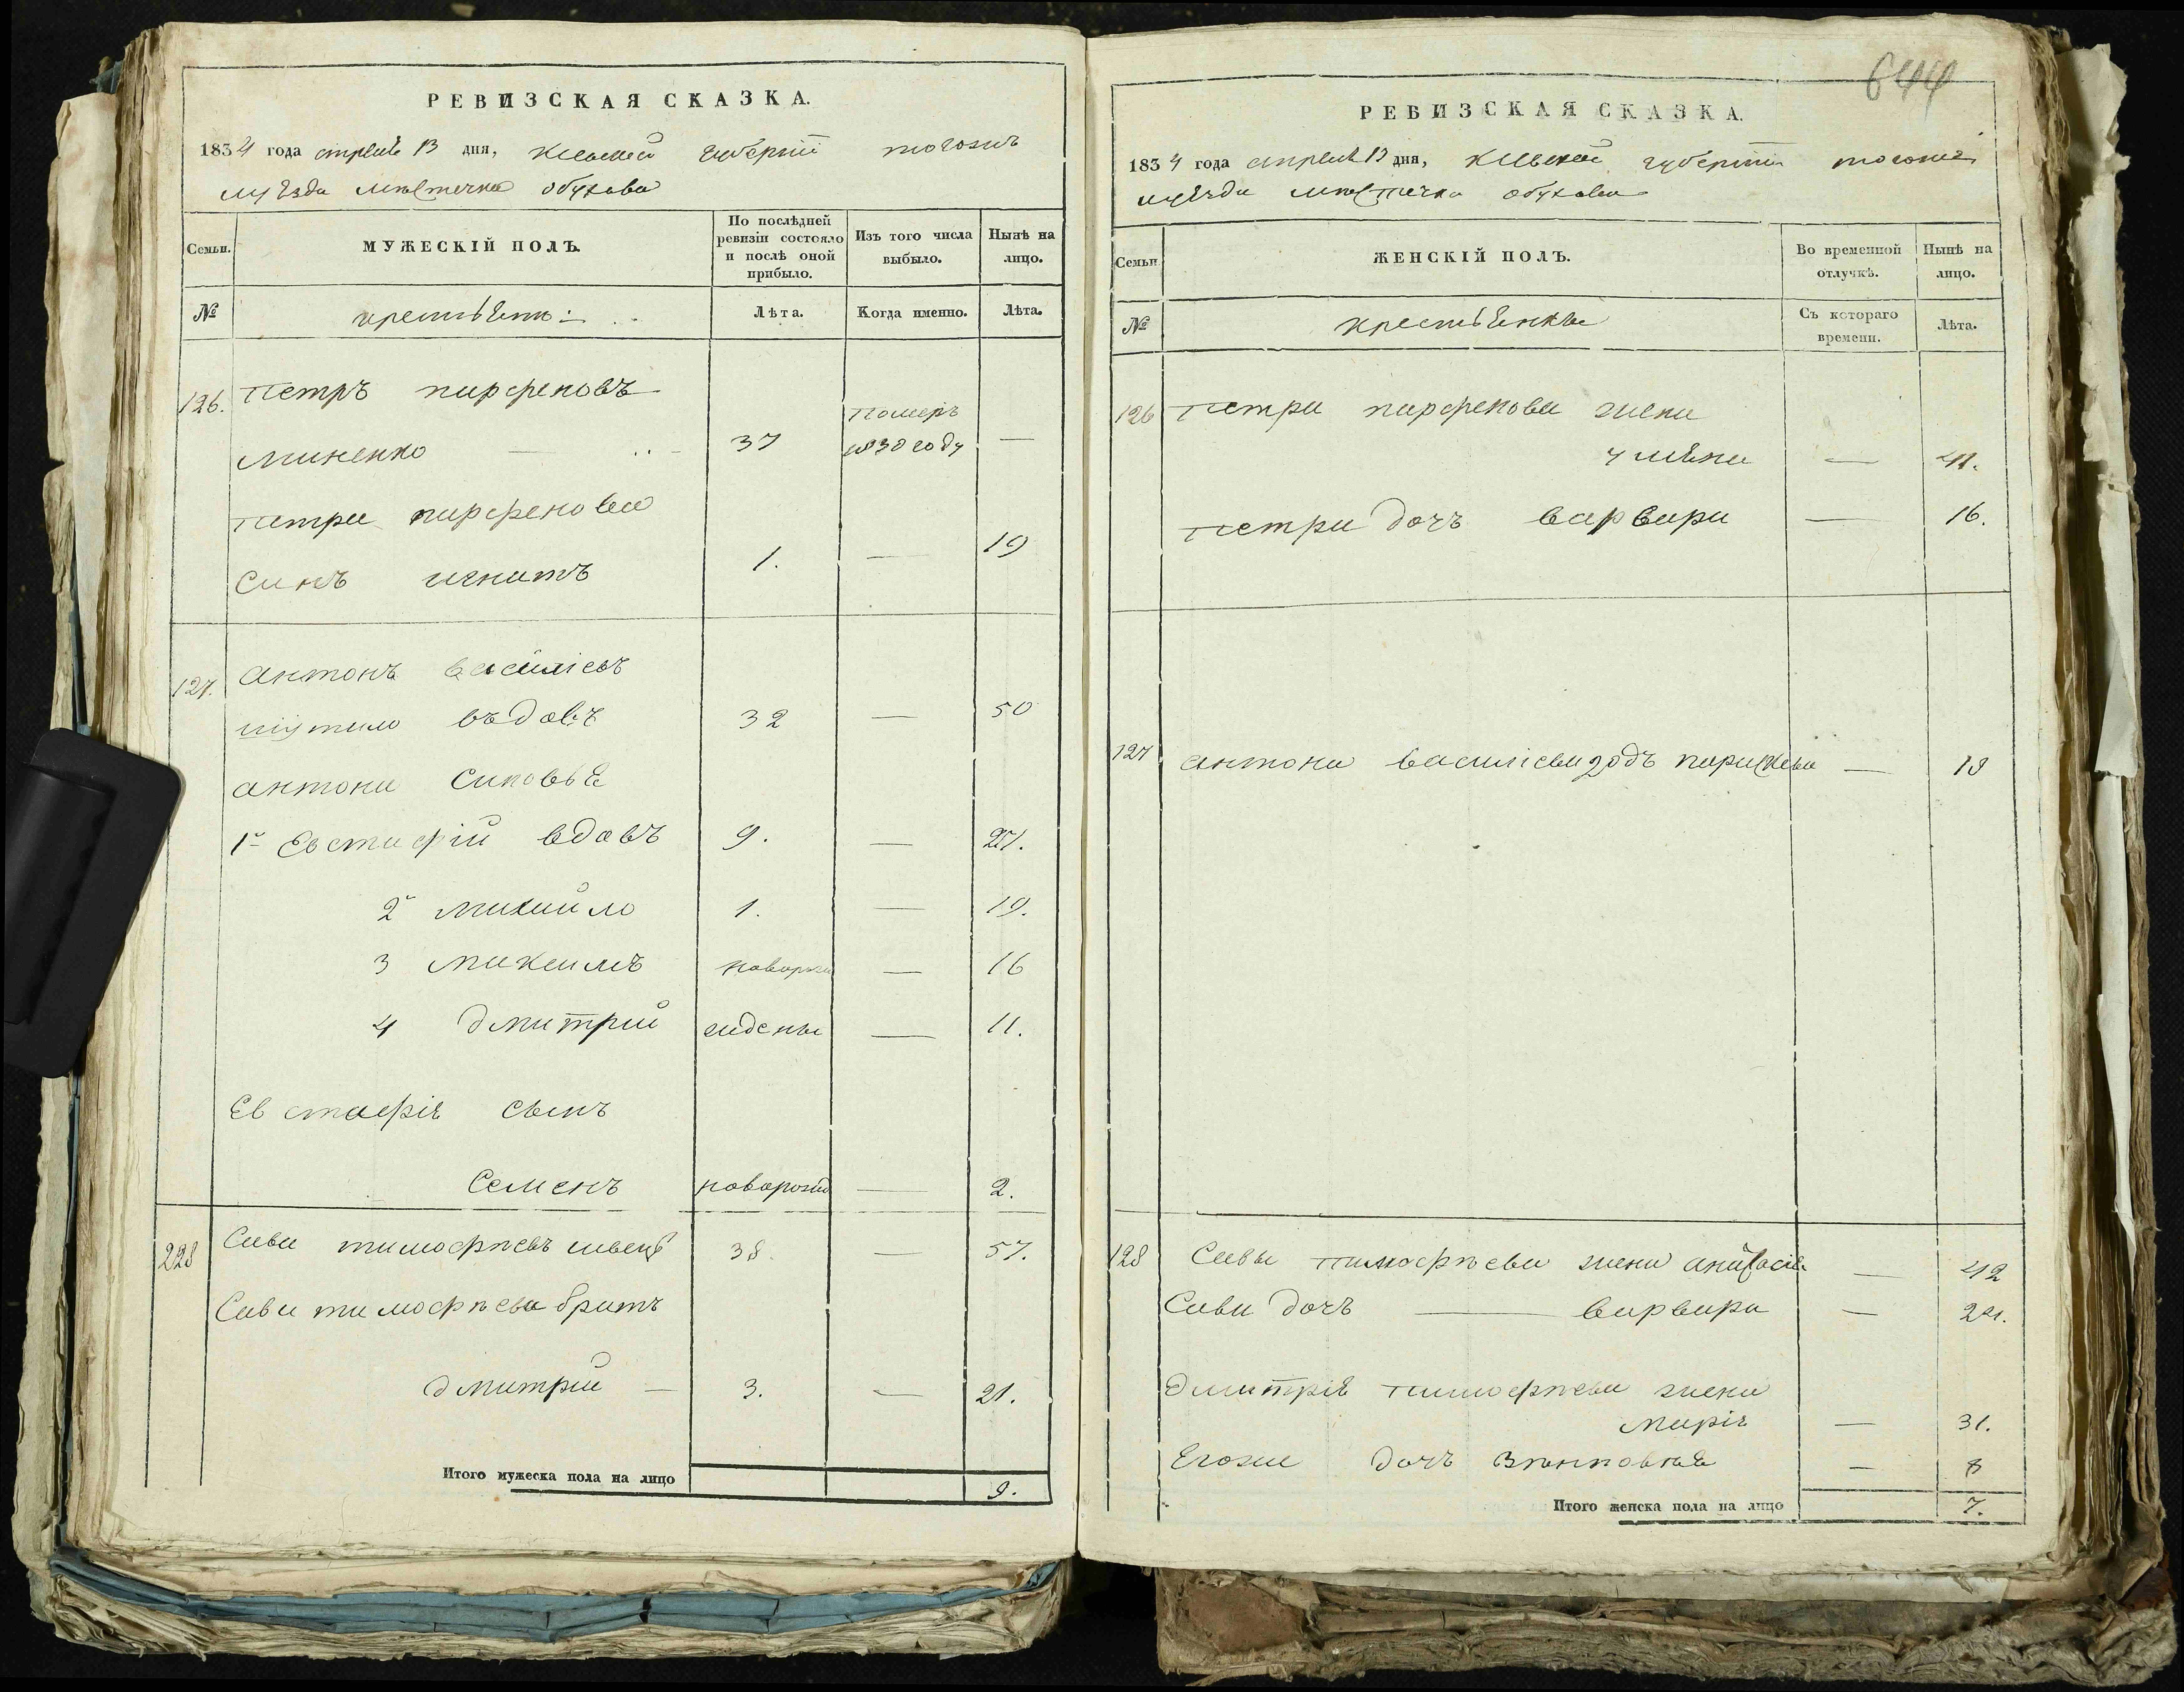 РЕВИЗСКАЯ СКАЗКА.
1834 года апреля 13 дня, Киевской губернии тогожъ
уѣзда местечка обухова
Семьи.
МУЖЕСКІЙ ПОЛЪ.
По послѣдней ревизіи состояло и послѣ оной прибыло.
Изъ того числа выбыло.
Нынѣ на лицо.
№
крестьяне:
Лѣта.
Когда именно.
Лѣта.
126. Петръ парфеновъ
миненко 37 померъ 1830 году —
петра парфенова
синъ игнатъ 1. — 19
127. антонъ василіевъ
шутило вьдовъ 32 — 50
антона синовья
1й Евстафій вдовъ 9. — 27.
2й михайло 1. — 19.
3 михаилъ новорож — 16
4 дмитрий дены — 11.
Евстафія сынъ
Семенъ новорожд — 2.
228 Сава тимофеевъ швецъ 38. — 57.
Сави тимофеева братъ
дмитрий — 3. — 21.
Итого мужеска пола на лицо 9.
644
РЕВИЗСКАЯ СКАЗКА.
1834 года апреля 13 дня, Киевской губернии тогожъ
уѣзда местечка обухова
Семьи
ЖЕНСКІЙ ПОЛЪ.
Во временной отлучкѣ.
Нынѣ на лицо.
№
крестьянки
Съ котораго времени.
Лѣта.
126 Петра парфенова жена
уляна — 41.
петра дочъ варвара — 16.
127 антона василіева дочъ параскева — 18
128 Савы тимофеева жена анастасія — 42
Сави дочъ — варвара — 21.
Дмитрія тимофеева жена
марія — 31.
Егоже дочъ Зѣновія — 8
Итого женска пола на лицо 7.